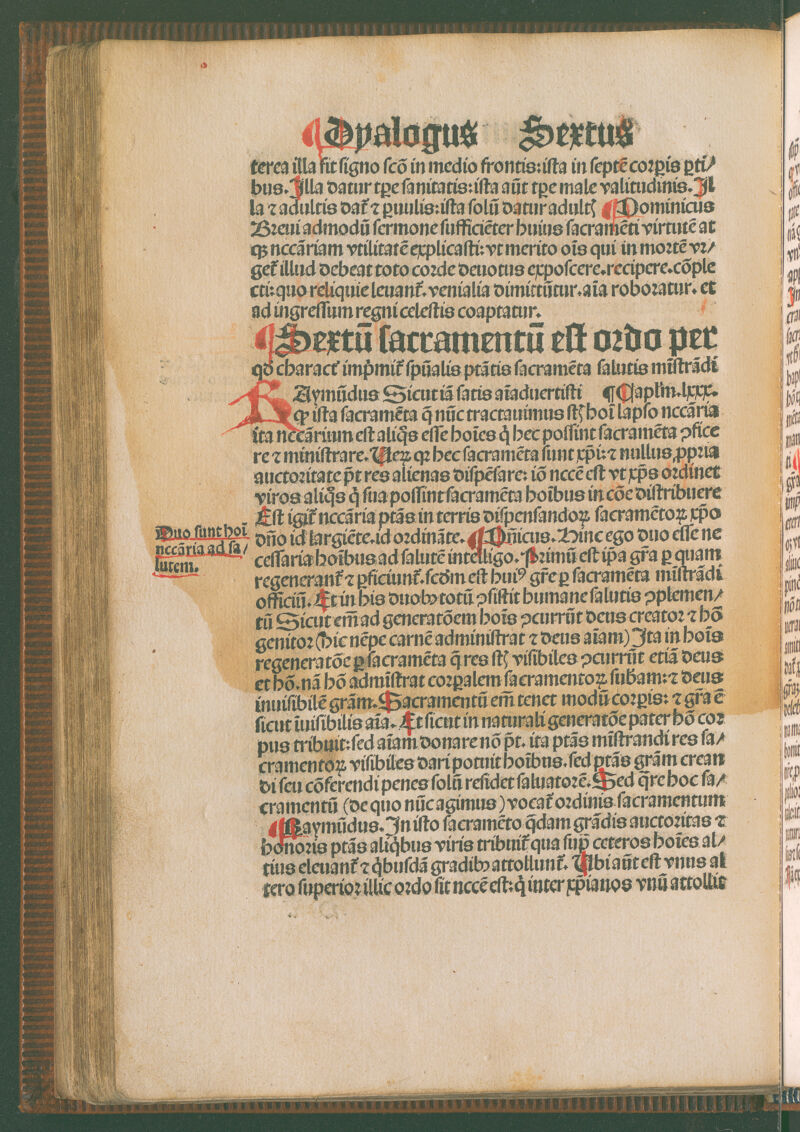 ¶Dyalogus Sextus
terea illa fit signo scō in medio frontis: ista in septē corꝑis ꝑti⸗
bus. Illa datur tꝑe sanitatis: ista aūt tꝑe male valitudinis. Il
la ⁊ adultis dat᷑ ⁊ ꝑuulis: ista solū datur adultꝭ ¶Dominicus
Breui admodū sermone sufficiēter huius sacramēti virtutē at
qꝫ nccāriam vtilitatē explicasti: vt merito oīs qui in mortē vr⸗
get᷑ illud debeat toto corde deuotus exposcere. recipere. cōple
cti: quo reliquie leuant᷑. venialia dimittūtur. aīa roboratur. et
ad ingressum regni celestis coaptatur.
¶Sextū sacramentū est ordo per
qđ charact᷑ imp̄mit᷑ sp̄ualis ptātis sacramēta salutis mīstrādi
RAymūdus Sicut iā satis aīaduertisti ¶Caplm̄.lxxx.
ꝙ ista sacramēta q̄ nūc tractauimus stꝭ hoī lapso nccāria
ita nccārium est aliq̄s esse hoīes q̇ hec possint sacramēta ꝯfice
re ⁊ ministrare. Uerꝫ qꝛ hec sacramēta sunt xp̄i: ⁊ nullus ꝓpria
auctoritate p̄t res alienas dispēsare: iō nccē est vt xp̄s ordinet
viros aliq̊s q̇ sua possint sacramēta hoībus in cōe distribuere
Est igit᷑ nccāria ptās in terris dispensandoꝝ sacramētoꝝ xp̄o
dn̄o id largiēte. id ordināte. ¶Dn̄icus. Hinc ego duo esse ne
cessaria hoībus ad salutē intelligo. Primū est ip̄a gr̄a ꝑ quam
regenerant᷑ ⁊ ꝑficiunt᷑. scđm est huiꝰ gr̄e ꝑ sacramēta mīstrādi
officiū. Et in his duobꝫ totū ꝯsistit humane salutis ꝯplemen⸗
tū Sicut em̄ ad generatōem hoīs ꝯcurrūt deus creator ⁊ hō
genitor (hic nēpe carnē administrat ⁊ deus aīam) Ita in hoīs
regeneratōe ꝑ sacramēta q̄ res stꝭ visibiles ꝯcurrūt etiā deus
et hō. nā hō admīstrat corꝑalem sacramentoꝝ sub̄am: ⁊ deus
inuisibilē grām. Sacramentū em̄ tenet modū corꝑis: ⁊ gr̄a ē
sicut īuisibilis aīa. Et sicut in naturali generatōe pater hō cor
pus tribuit: sed aīam donare nō p̄t. ita ptās mīstrandi res sa⸗
cramentoꝝ visibiles dari potuit hoībus. sed ptās grām crean
di seu cōferendi penes solū residet saluatorē. Sed q̄re hoc sa⸗
cramentū (de quo nūc agimus) vocat᷑ ordinis sacramentum
¶Raymūdus. In isto sacramēto q̄dam grādis auctoritas ⁊
honoris ptās aliq̇bus viris tribuit᷑ qua sup̄ ceteros hoīes al⸗
tius eleuant᷑ ⁊ q̇busdā gradibꝫ attollunt᷑. Ubi aūt est vnus al
tero superior illic ordo sit nccē est: q̇ inter xp̄ianos vnū attollit
Duo sunt hoī
nccāria ad sa⸗
lutem.